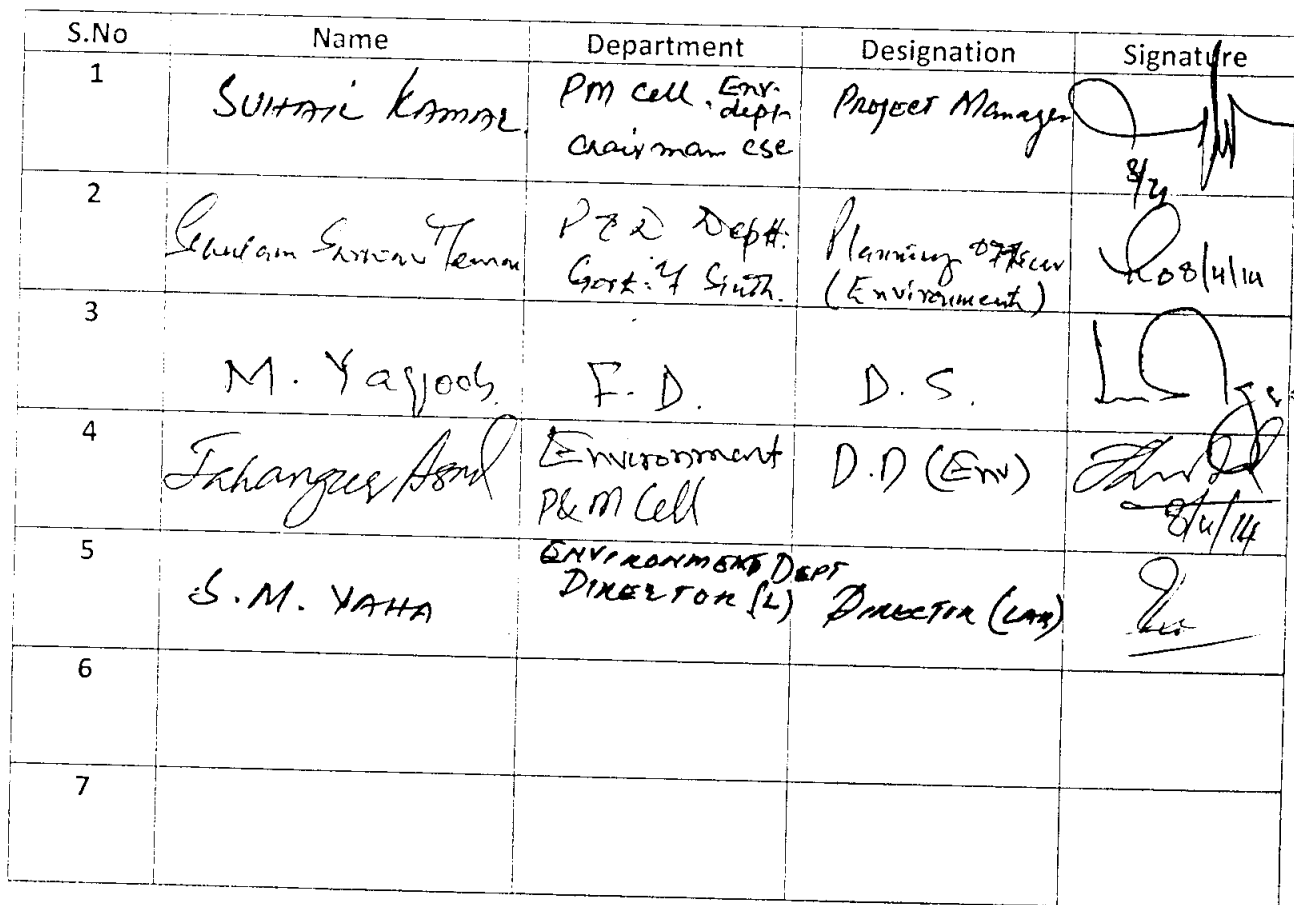 S.No Name Department Designation Signature
1
SUHAIL KAMAL
PM Cell. Env. dept
Chairman CSC
Project Manager
2
P & D Deptt:
Govt: of Sindh.
Planning Officer
(Environment)
08/4/14
3
M. Yaqoob.
F. D.
D. S.
4
Jahangir Asad
Environment
P&M Cell
D.D (Env)
8/4/14
5
S.M. YAHA
ENVIRONMENT DEPT
DIRECTOR (L)
DIRECTOR (LAB)
6
7